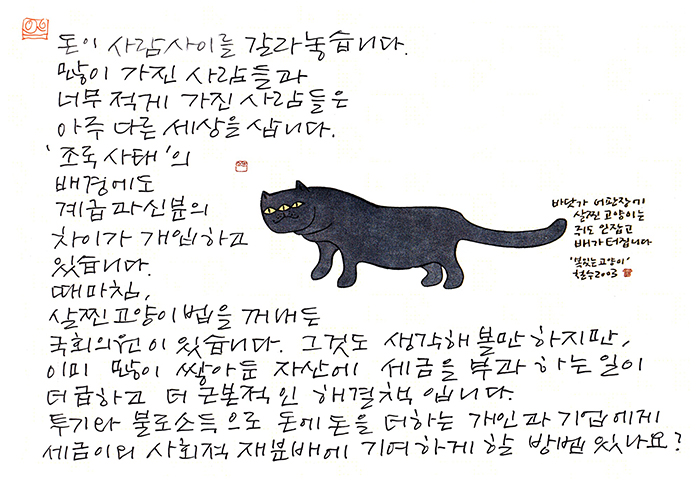 돈이 사람사이를 갈라놓습니다.
많이 가진 사람들과
너무 적게 가진 사람들은
아주 다른 세상을 삽니다.
'조국 사태'의
배경에도
계급과 신분의
차이가 개입하고
있습니다.
때마침,
살찐고양이법을 꺼내든
국회의원이 있습니다. 그것도 생각해볼만 하지만,
이미 많이 쌓아둔 자산에 세금을 부과하는 일이
더 급하고 더 근본적인 해결책입니다.
투기와 불로소득으로 돈에 돈을 더하는 개인과 기업에게
세금이외 사회적 재분배에 기여하게 할 방법 있나요?
바닷가 어판장에
살찐 고양이는
쥐도 안잡고
배가 터집니다
철수2003